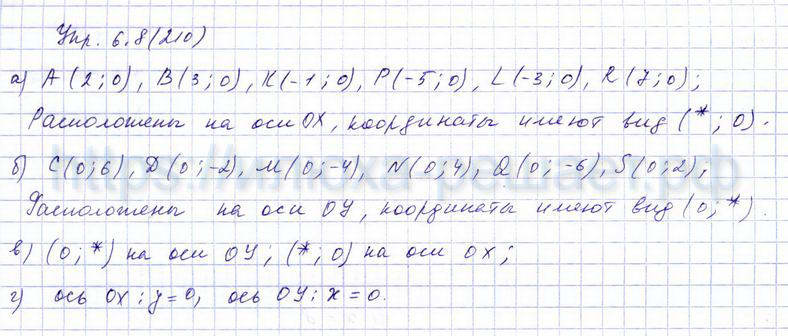 Упр. 6.8(210)
а) A (2; 0), B(3; 0), K(-1; 0), P(-5; 0), L(-3; 0), R(7; 0);
Расположены на оси OX, координаты имеют вид (*; 0).
б) C(0; 6), D(0; -2), M(0; -4), N(0; 4), Q(0; -6), S(0; 2),
Расположены на оси OY, координаты имеют вид (0; *).
в) (0; *) на оси OY; (*; 0) на оси OX;
г) ось OX: y = 0, ось OY: x = 0.